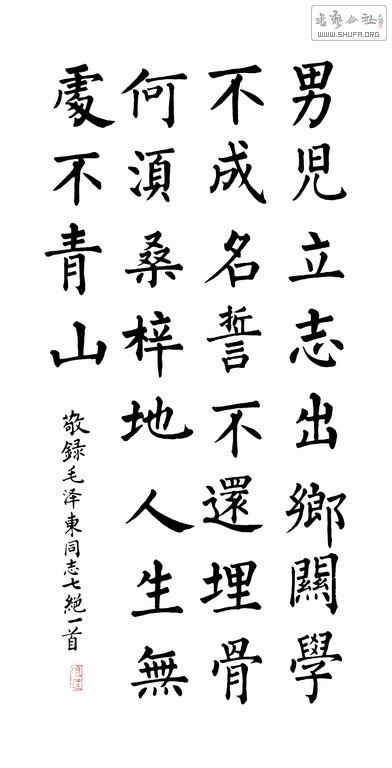 男兒立志出鄉關學
不成名誓不還埋骨
何須桑梓地人生無
處不青山
敬録毛泽東同志七絕一首
書藝公社
WWW.SHUFA.ORG